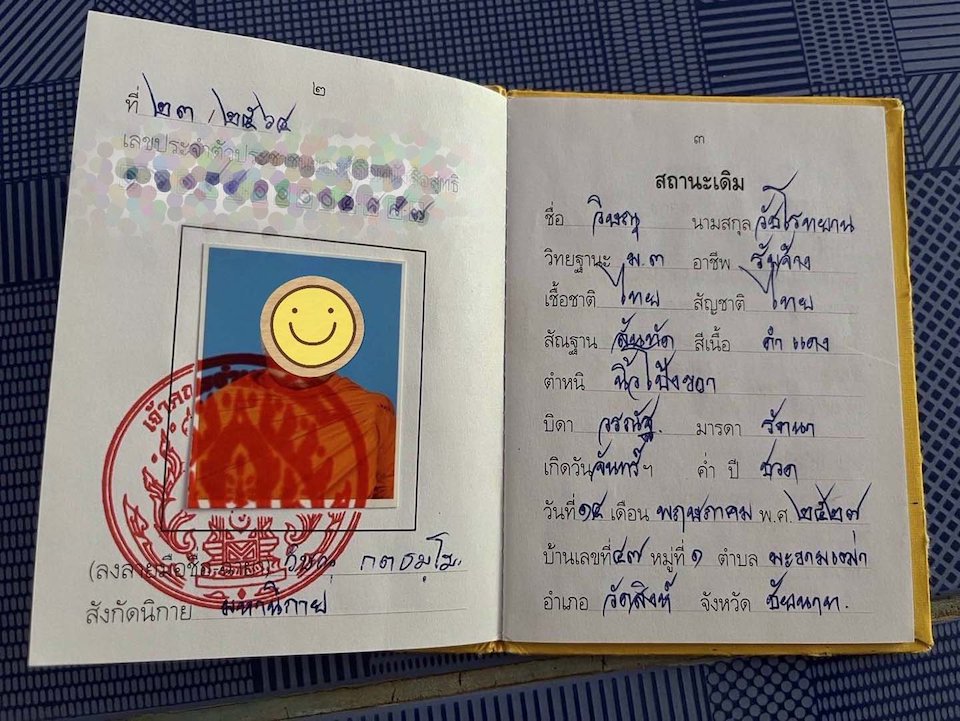 ๒
ที่ ๒๓ / ๒๕๖๔
เลขประจำตัวประชาชน
(ลงลายมือชื่อ กตธมฺโม
สังกัดนิกาย มหานิกาย
๓
สถานะเดิม
ชื่อ วิษณุ นามสกุล
วิทยฐานะ ม.๓ อาชีพ รับจ้าง
เชื้อชาติ ไทย สัญชาติ ไทย
สัณฐาน สันทัด สีเนื้อ ดำแดง
ตำหนิ นิ้วโป้งขวา
บิดา วรณัฐ. มารดา รัตนา
เกิดวัน จันทร์ ฯ ค่ำ ปี ชวด
วันที่ ๑๔ เดือน พฤษภาคม พ.ศ. ๒๕๒๗
บ้านเลขที่ ๔๗ หมู่ที่ ๑ ตำบล มะขามเฒ่า
อำเภอ วัดสิงห์ จังหวัด ชัยนาท.